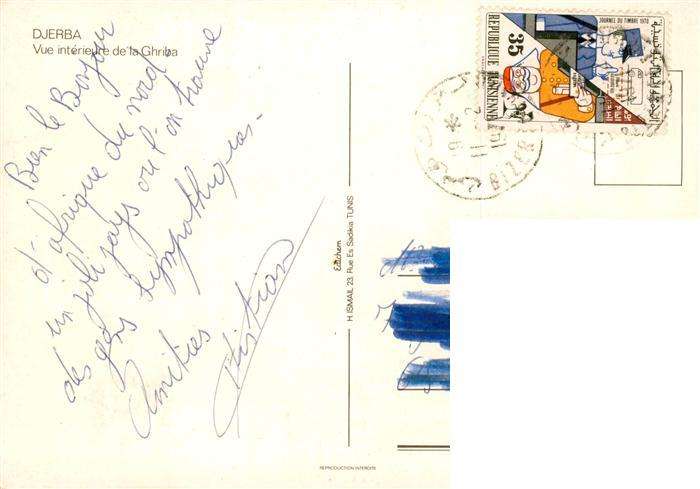 DJERBA
Vue intérieure de la Ghriba
Bien le Bonjour
d'afrique du nord
un joli pays ou l'on trouve
des gens sympathiques.
Amitiés
Edichem
H. ISMAIL 23, Rue Es Sadikia TUNIS
REPRODUCTION INTERDITE
REPUBLIQUE TUNISIENNE
35
JOURNEE DU TIMBRE 1978
BIZER